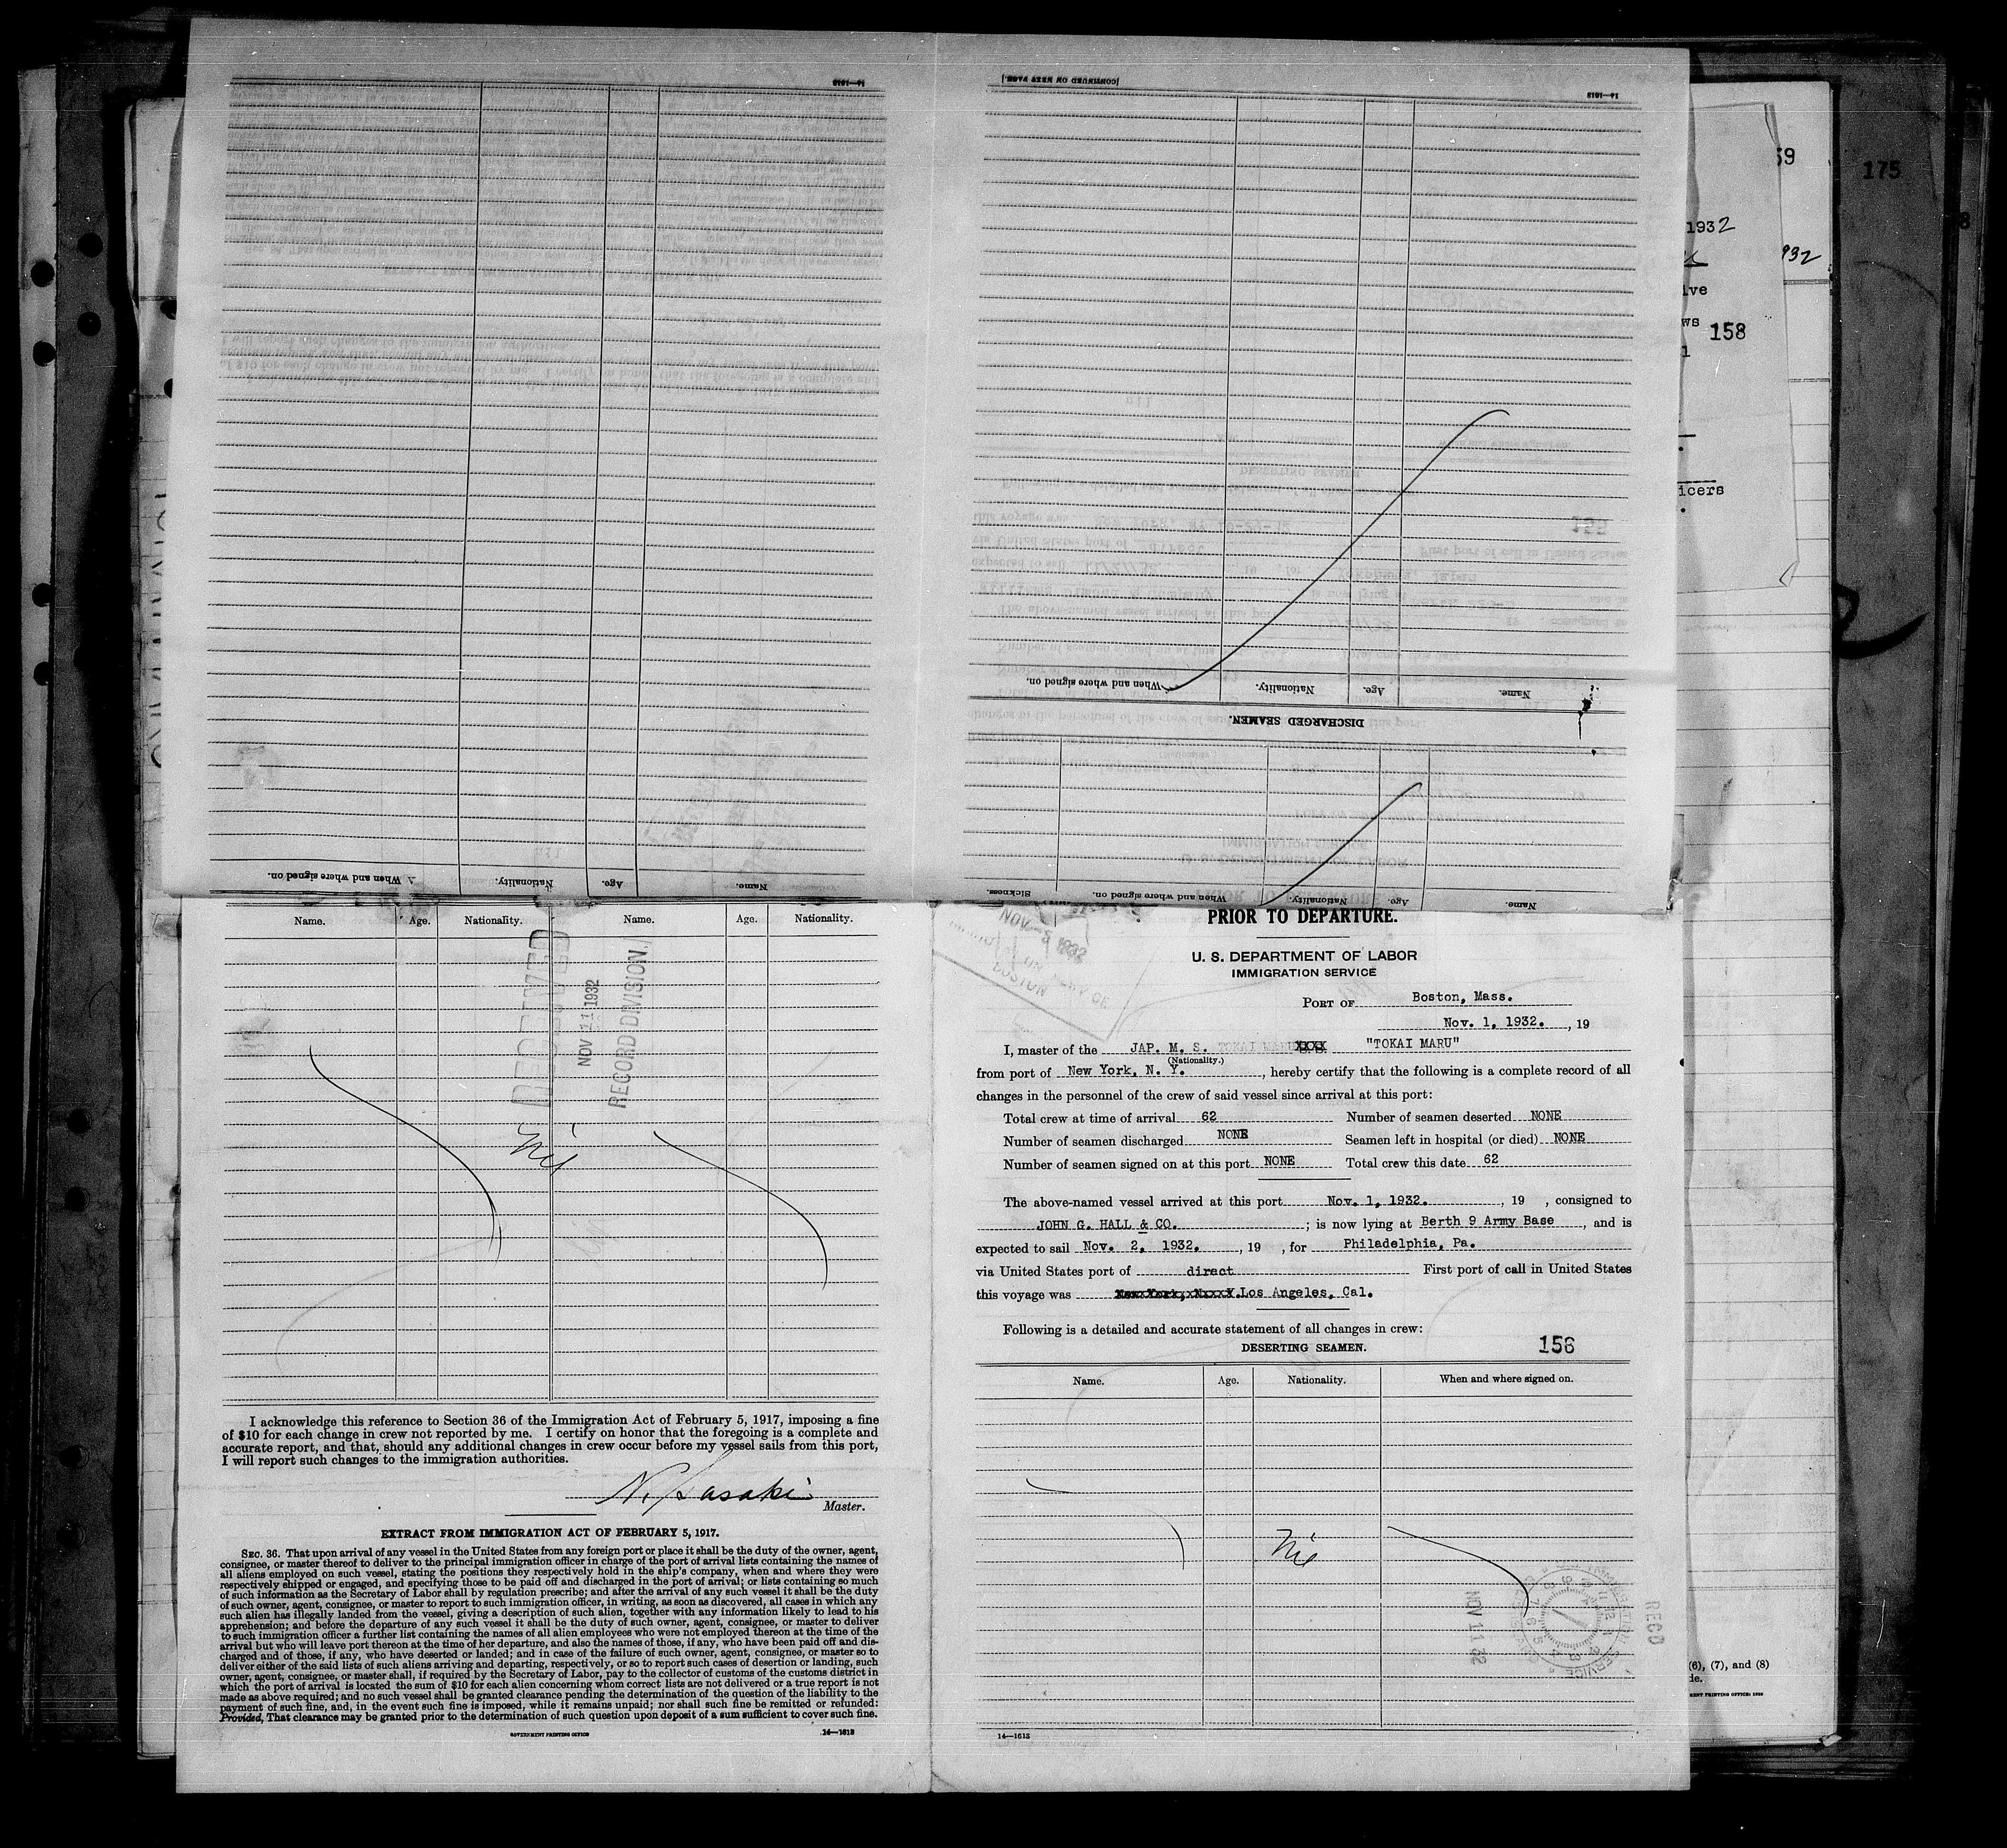 14—1613
[CONTINUED ON NEXT PAGE.]
14—1613
59
175
1932
932
ive
ws
158
1
icers
When and where signed on.
Nationality.
Age.
Name.
DISCHARGED SEAMEN.
When and where signed on.
Nationality.
Age.
Name.
Sickness.
When and where signed on.
Nationality.
Age.
Name.
Name. Age. Nationality. Name. Age. Nationality.
RECEIVED
NOV 11 1932
RECORD DIVISION
Nil
I acknowledge this reference to Section 36 of the Immigration Act of February 5, 1917, imposing a fine
of $10 for each change in crew not reported by me. I certify on honor that the foregoing is a complete and
accurate report, and that, should any additional changes in crew occur before my vessel sails from this port,
I will report such changes to the immigration authorities.
N. Sasaki
Master.
EXTRACT FROM IMMIGRATION ACT OF FEBRUARY 5, 1917.
SEC. 36. That upon arrival of any vessel in the United States from any foreign port or place it shall be the duty of the owner, agent,
consignee, or master thereof to deliver to the principal immigration officer in charge of the port of arrival lists containing the names of
all aliens employed on such vessel, stating the positions they respectively hold in the ship's company, when and where they were
respectively shipped or engaged, and specifying those to be paid off and discharged in the port of arrival; or lists containing so much
of such information as the Secretary of Labor shall by regulation prescribe; and after the arrival of any such vessel it shall be the duty
of such owner, agent, consignee, or master to report to such immigration officer, in writing, as soon as discovered, all cases in which any
such alien has illegally landed from the vessel, giving a description of such alien, together with any information likely to lead to his
apprehension; and before the departure of any such vessel it shall be the duty of such owner, agent, consignee, or master to deliver
to such immigration officer a further list containing the names of all alien employees who were not employed thereon at the time of the
arrival but who will leave port thereon at the time of her departure, and also the names of those, if any, who have been paid off and dis-
charged and of those, if any, who have deserted or landed; and in case of the failure of such owner, agent, consignee, or master so to
deliver either of the said lists of such aliens arriving and departing, respectively, or so to report such cases of desertion or landing, such
owner, agent, consignee, or master shall, if required by the Secretary of Labor, pay to the collector of customs of the customs district in
which the port of arrival is located the sum of $10 for each alien concerning whom correct lists are not delivered or a true report is not
made as above required; and no such vessel shall be granted clearance pending the determination of the question of the liability to the
payment of such fine, and, in the event such fine is imposed, while it remains unpaid; nor shall such fine be remitted or refunded:
Provided, That clearance may be granted prior to the determination of such question upon deposit of a sum sufficient to cover such fine.
GOVERNMENT PRINTING OFFICE
14—1613
PRIOR TO DEPARTURE.
NOV -3 1932
BOSTON
U. S. DEPARTMENT OF LABOR
IMMIGRATION SERVICE
PORT OF Boston, Mass.
Nov. 1, 1932. , 19
I, master of the JAP. M. S. TOKAI MARU XXXX "TOKAI MARU"
(Nationality.)
from port of New York, N. Y. , hereby certify that the following is a complete record of all
changes in the personnel of the crew of said vessel since arrival at this port:
Total crew at time of arrival 62 Number of seamen deserted NONE
Number of seamen discharged NONE Seamen left in hospital (or died) NONE
Number of seamen signed on at this port NONE Total crew this date 62
The above-named vessel arrived at this port Nov. 1, 1932. , 19 , consigned to
JOHN G. HALL & CO. ; is now lying at Berth 9 Army Base , and is
expected to sail Nov. 2, 1932. , 19 , for Philadelphia, Pa.
via United States port of direct First port of call in United States
this voyage was Los Angeles, Cal.
Following is a detailed and accurate statement of all changes in crew:
DESERTING SEAMEN. 156
Name. Age. Nationality. When and where signed on.
Nil
NOV 11 32
RECD
14—1613
(6), (7), and (8)
de.